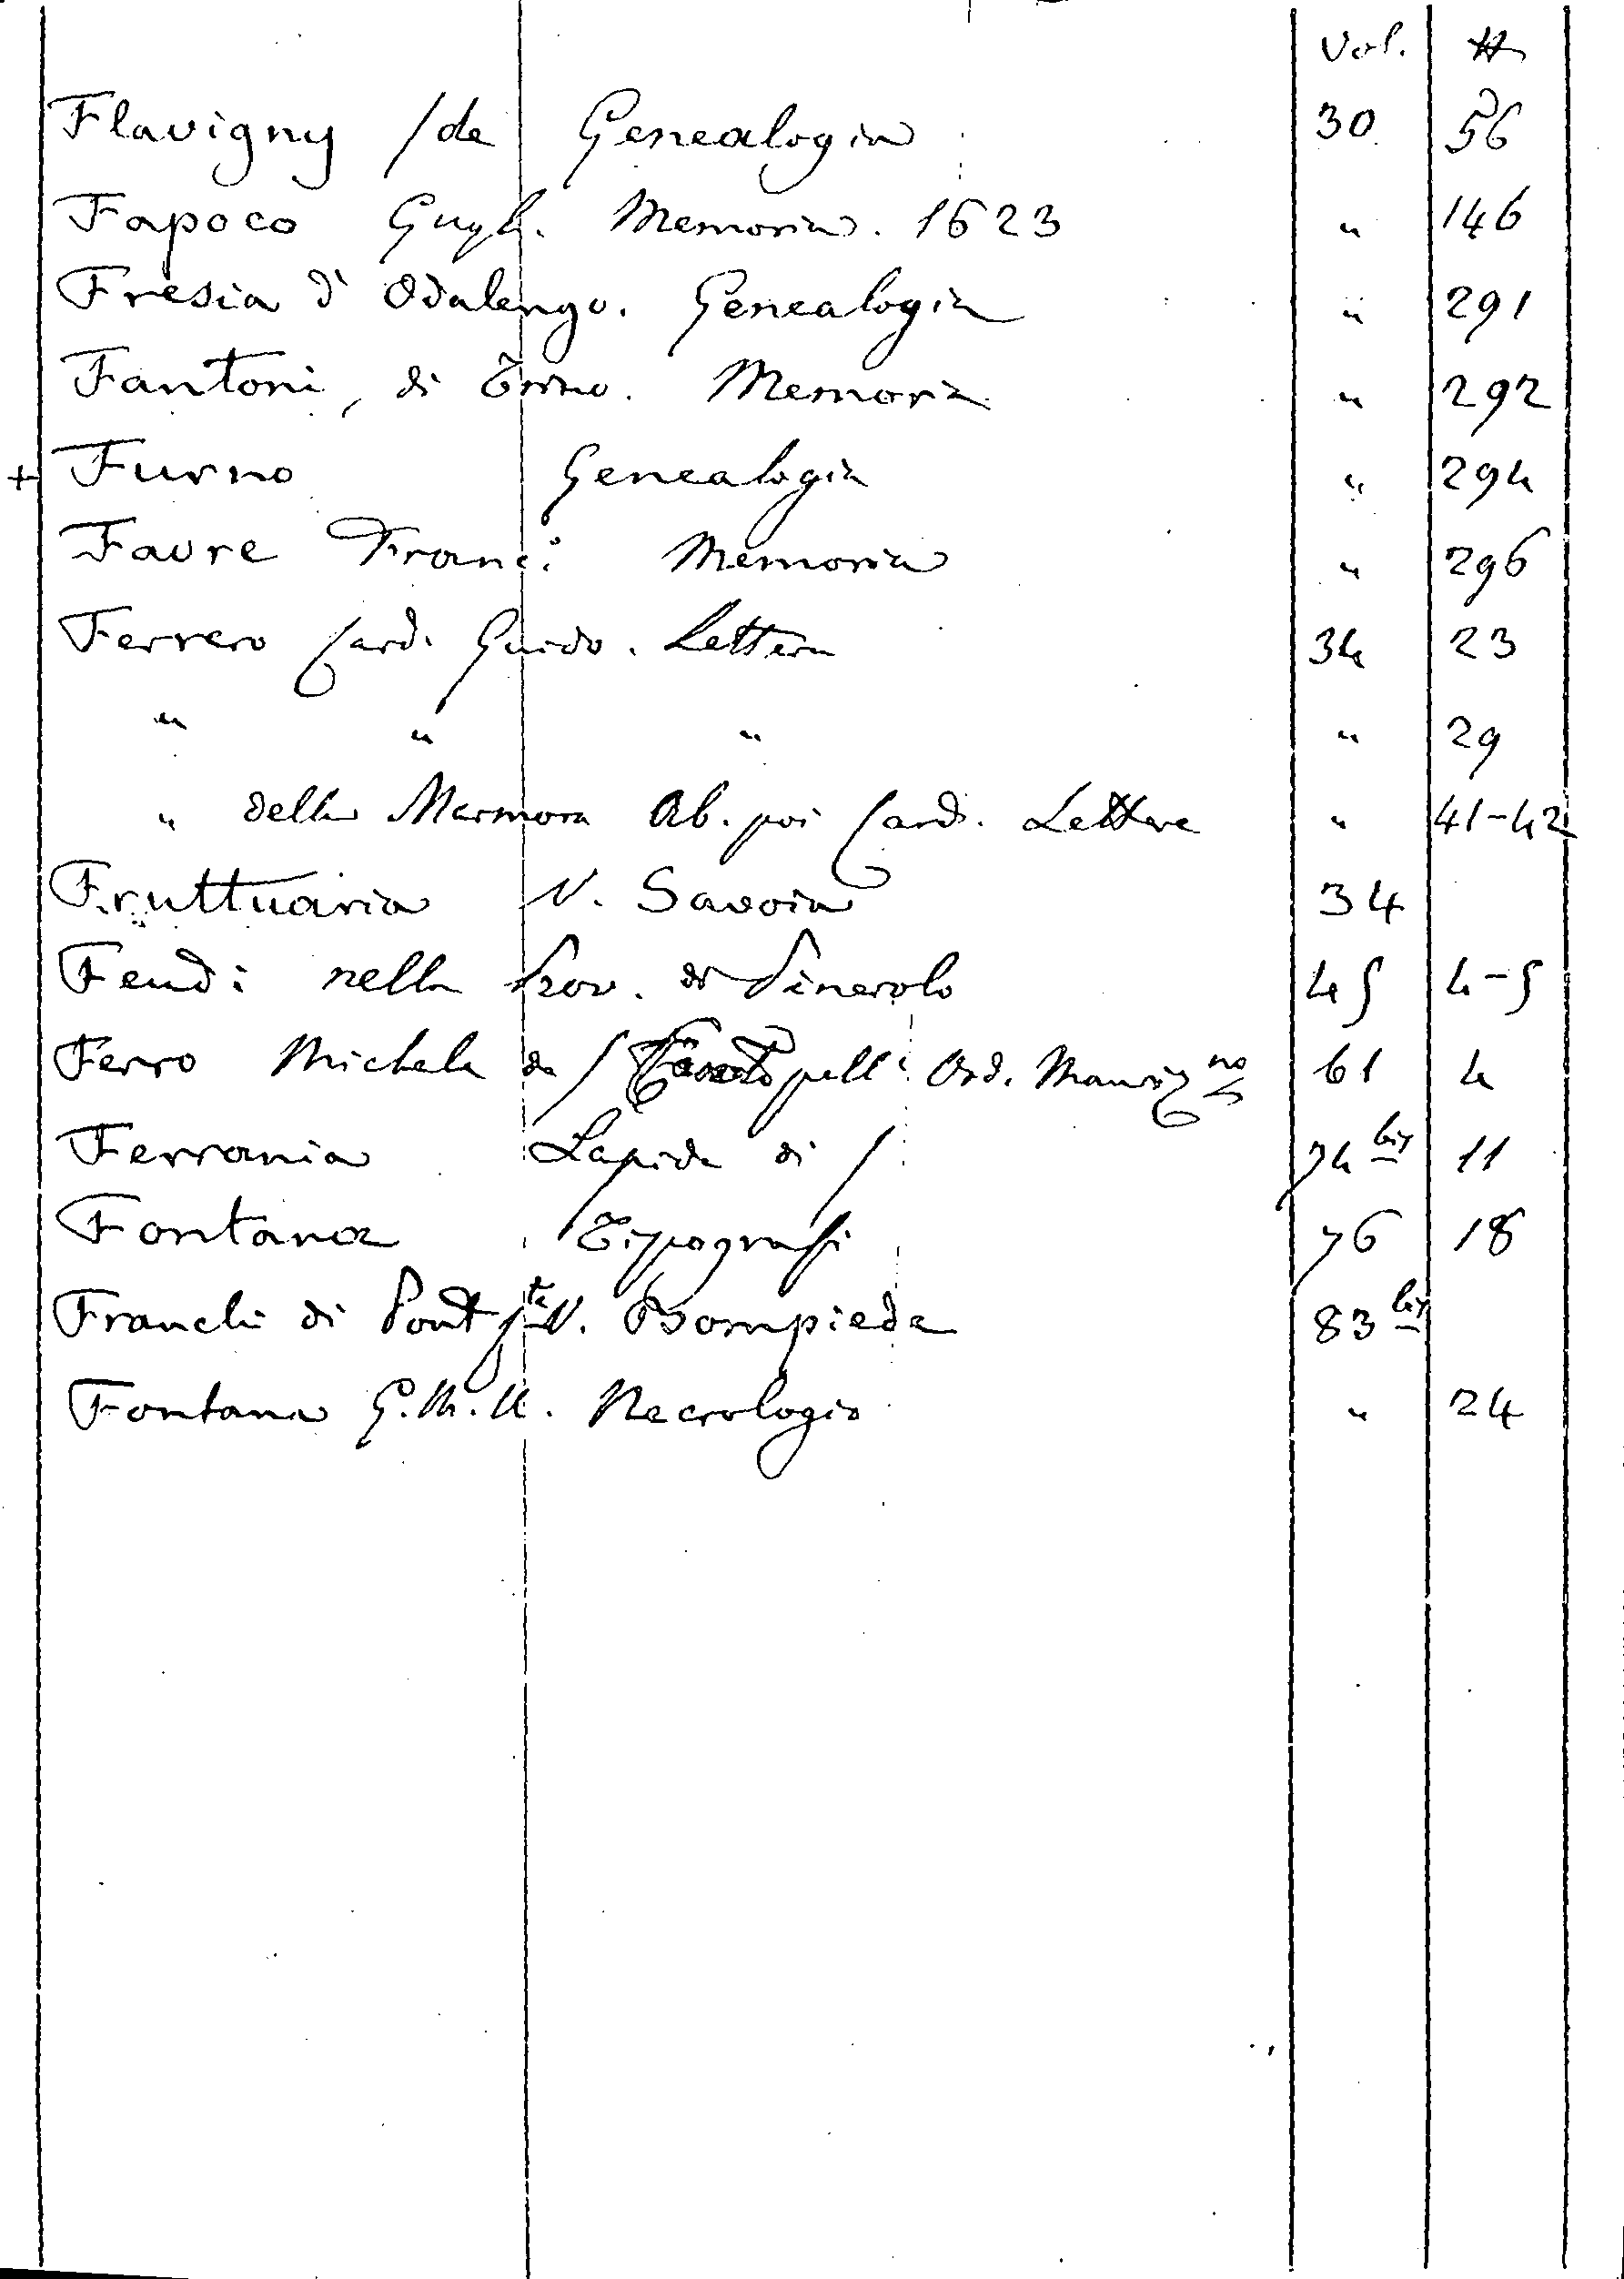 Vol. #
Flavigny /de Genealogia 30 56
Fapoco Gugl. Memoria. 1623 " 146
Fresia d' Odalengo. Genealogia " 291
Fantoni, di Trino. Memoria " 292
+ Furno Genealogia " 294
Favre Franc. Memoria " 296
Ferrero Card. Guido. Lettera 34 23
" " " " 29
" della Marmora Ab. poi Card. Lettere " 41-42
Fruttuaria V. Savoia 34
Feudi nella Prov. di Pinerolo 45 4-5
Ferro Michele da / Ord. Mauriz no 61 4
Ferrania Lapide di / 74 bis 11
Fontana Tipografi 76 18
Franchi di Pont V. Bompiede 83 bis
Fontana G.M.U. Necrologio " 24